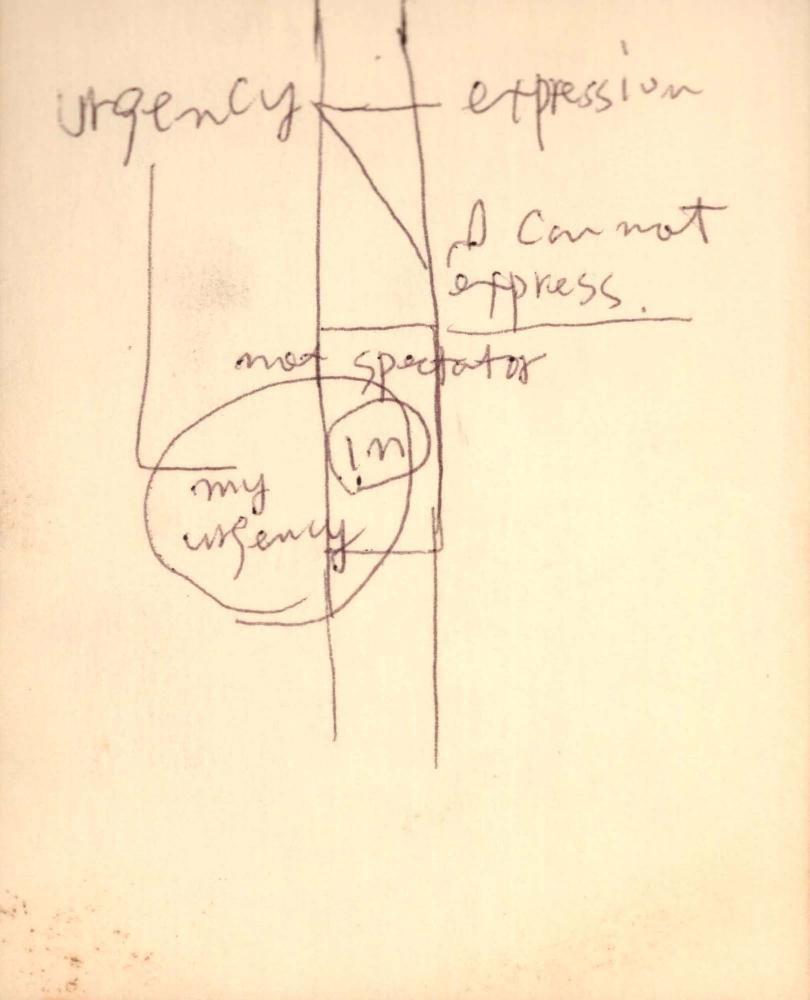 urgency expression
I cannot
express.
not spectator
in
my
urgency